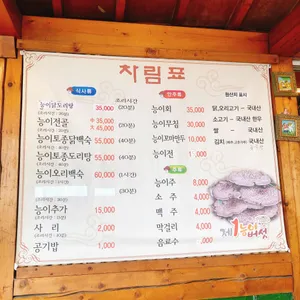 차림표
식사류
조리시간
능이닭도리탕 35,000
능이전골 中 35,000
大 45,000
능이토종닭백숙 55,000 (40분)
능이토종도리탕 55,000
능이오리백숙 60,000
능이추가 15,000
사리 2,000
공기밥 1,000
안주류
능이회 35,000
능이무침 30,000
능이전 1
주류
능이주 8,000
소주 4,000
맥주 4,000
막걸리 4,000
음료수
원산지 표시
닭,오리고기 - 국내산
소고기 - 국내산 한우
쌀 - 국내산
김치 - 국내산
제1능이버섯